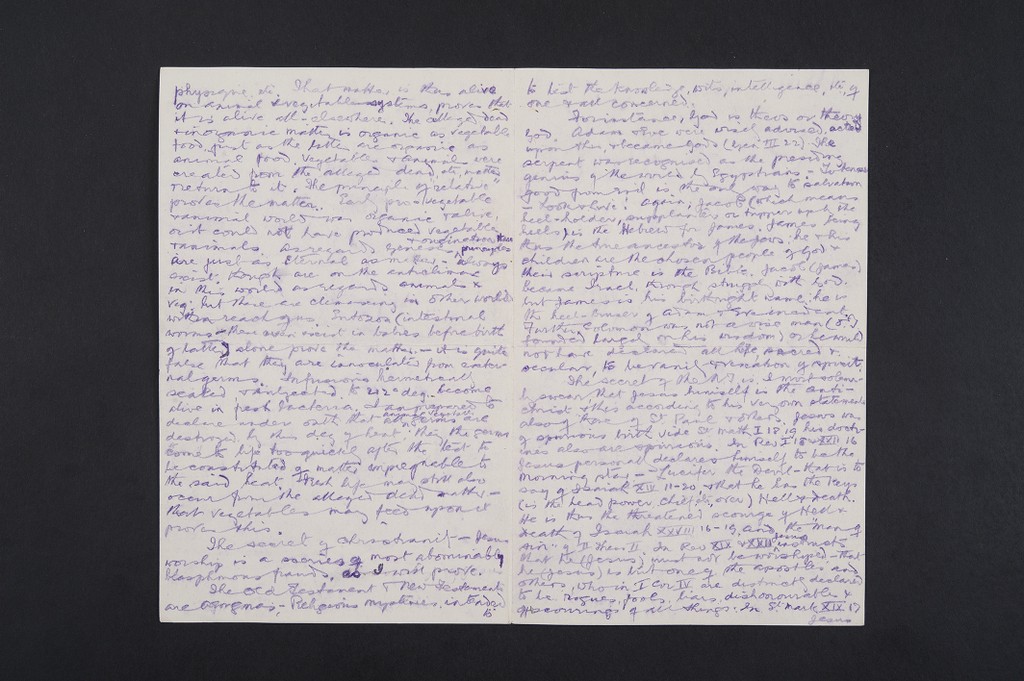 physique, etc. That matter is thus alive
on animal & vegetable systems, proves that
it is alive all-elsewhere. The alleged dead
& inorganic matter is organic as vegetable
food, just as the latter are organic as
animal food. Vegetables & animals were
created from the alleged dead, etc, matter
& return to it. The principle of relative
proves the matter. Early pro-vegetable
& animal world was organic & alive,
or it could not have produced vegetables
& animals. As regards Genesis, & origination, these principles
are just as Eternal as matter, - always
exist. Though are on the
in this world as regards animals &
veg: but these are in other worlds
within reach of us. Entozoa (intestinal
worms - these even exist in babies before birth
of latter) alone prove the matter. - it is quite
false that they are innoculated from exter-
nal germs. Infusions hermetically
sealed, & subjected to 212 deg. become
alive in fresh bacteria. I am prepared to
declare under oath that all germs are
destroyed by this deg of heat. Then the germs
come to life too quickly after the test to
be constituted of matter impregnable to
the said heat. Fresh life may still also
occur from the alleged dead matter -
that vegetables may feed upon it
proves this.
The secret of Christianity - Jesus
worship is a series of most abominably
blasphemous frauds, as I will prove.
The Old Testament & New Testament
are enigmas, - Religious mysteries, intended
to
to test the knowledge, wits, intelligence, etc, of
one & all concerned.
For instance, God is theos or theory of
God. Adam & Eve were well advised, acted
upon this, & became Gods (Gen III 22). The
serpent was recognised as the presiding
genius of the world by Egyptians. - To know
good from evil is the only way to salvation
- Look & live! Again, Jacob (which means
heel-holder, supplanter or tripper up of the
heels) is the Hebrew for James. James being
thus the true ancestor of the Jews, he & his
children are the chosen people of God &
their scripture is the Bible. Jacob (James)
became Israel, through struggle with God.
but James is his birthright name; he is
the heel-bruiser of Adam & Eve incident.
Further, Solomon was not a wise man (
founded largely on his wisdom) or he would
not have declared all life, sacred &
secular, to be vanity & vexation of spirit.
The secret of the N.T. is, I most solemn-
ly swear that Jesus himself is the anti-
Christ & this according to his very own statements
also of those of St Paul & others. Jesus was
of spurious birth vide St Math I 18 19 his doctr-
ines also are spurious. In Rev I 18 & XXII 16
Jesus personally declares himself to be the
Morning star - Lucifer the Devil - that is to
say of Isaiah XIV 11-20 & that he has the keys
(is the head power, chief, over) Hell & death.
He is thus the threatened scourge of Hell &
death of Isaiah XXVIII 16-19, and the "man of
sin" of II Thes II. In Rev XIX & XXII Jesus instructs
that he (Jesus) must not be worshiped - that
he (Jesus) is but one of the apostles and
others, who in I Cor IV are distinctly declared
to be rogues, fools, liars, dishonourables &
offscourings of all things. In St Mark XIX 17
Jesus